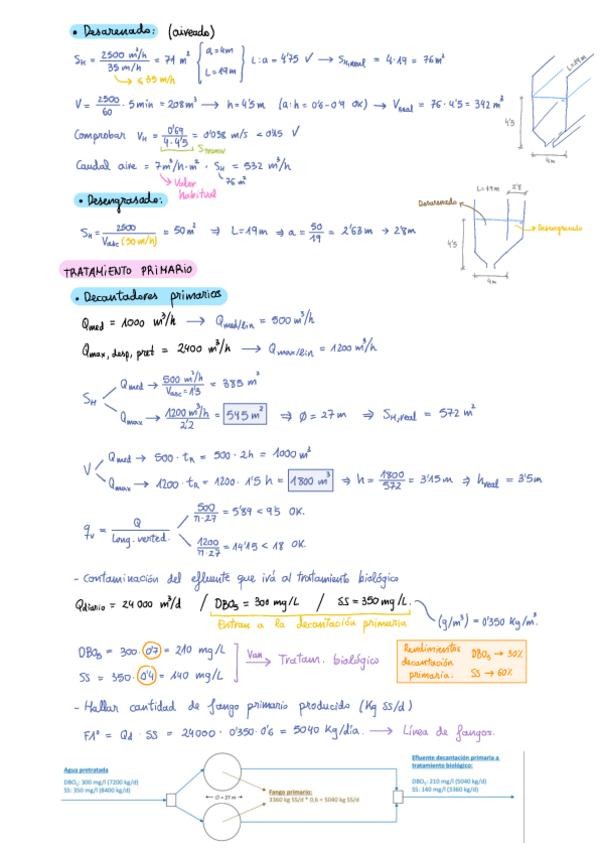 • Desarenado: (aireado)
S_H = 2500 m³/h / 35 m/h = 71 m² { a = 4m L = 19m } L:a = 4'75 √ → S_H,real = 4·19 = 76 m²
→ ≤ 35 m/h
V = 2500/60 · 5 min = 208 m³ → h = 4'5 m (a:h = 0'6-0'9 OK) → V_real = 76·4'5 = 342 m³
Comprobar V_H = 0'69 / 4·4'5 = 0'038 m/s < 0'15 √
Caudal aire = 7 m³/h·m² · S_H = 532 m³/h
→ Valor habitual
76 m²
L=19m
4'5
4m
• Desengrasado:
S_H = 2500 / Vasc (50 m/h) = 50 m² ⇒ L = 19 m ⇒ a = 50/19 = 2'63 m → 2'8 m
L=19m 2'8
Desarenado
Desengrasado
4'5
4m
TRATAMIENTO PRIMARIO
• Decantadores primarios
Qmed = 1000 m³/h → Qmed/lin = 500 m³/h
Qmax, desp, pret = 2400 m³/h → Qmax/lin = 1200 m³/h
S_H
Qmed → 500 m³/h / Vasc = 1'3 = 385 m²
Qmax → 1200 m³/h / 2'2 = 545 m² ⇒ Ø = 27 m ⇒ S_H,real = 572 m²
V
Qmed → 500 · t_R = 500 · 2h = 1000 m³
Qmax → 1200 · t_R = 1200 · 1'5 h = 1800 m³ ⇒ h = 1800/572 = 3'15 m ⇒ h_real = 3'5 m
q_v = Q / Long. verted.
500 / π·27 = 5'89 < 9'5 OK.
1200 / π·27 = 14'15 < 18 OK.
- Contaminación del efluente que irá al tratamiento biológico
Qdiario = 24 000 m³/d / DBO₅ = 300 mg/L / SS = 350 mg/L. → (g/m³) = 0'350 Kg/m³.
Entran a la decantación primaria
DBO₅ = 300 · 0'7 = 210 mg/L
SS = 350 · 0'4 = 140 mg/L
Van → Tratam. biológico
Rendimientos decantación primaria. DBO₅ → 30% SS → 60%
- Hallar cantidad de fango primario producido (Kg SS/d)
F1º = Qd · SS = 24000 · 0'350 · 0'6 = 5040 Kg/día. → Línea de fangos.
Agua pretratada
DBO₅: 300 mg/l (7200 kg/d)
SS: 350 mg/l (8400 kg/d)
Ø = 27 m
Fango primario:
3360 kg SS/d * 0,6 = 5040 kg SS/d
Efluente decantación primaria a tratamiento biológico:
DBO₅: 210 mg/l (5040 kg/d)
SS: 140 mg/l (3360 kg/d)